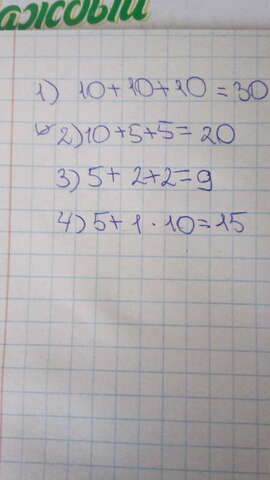 аждый
1) 10+10+10=30
2) 10+5+5=20
3) 5+2+2=9
4) 5+1·10=15